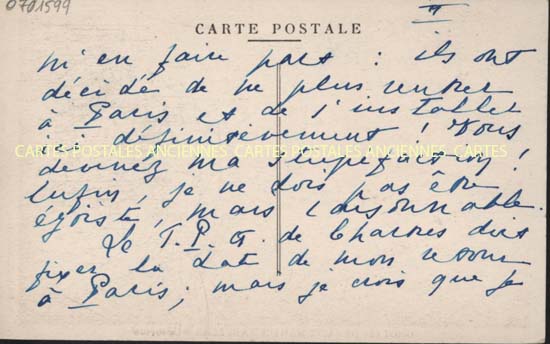 0701599
II
CARTE POSTALE
m'en faire part : ils ont
décidé de ne plus rentrer
à Paris et de s'installer
ici définitivement ! Vous
CARTES POSTALES ANCIENNES CARTES POSTALES ANCIENNES CARTES POSTALES ANCIENNES
devinez ma stupéfaction !
Enfin, je ne dois pas être
égoïste, mais raisonnable.
Le T.P.G. de Chartres doit
fixer la date de mon retour
à Paris ; mais je crois que je